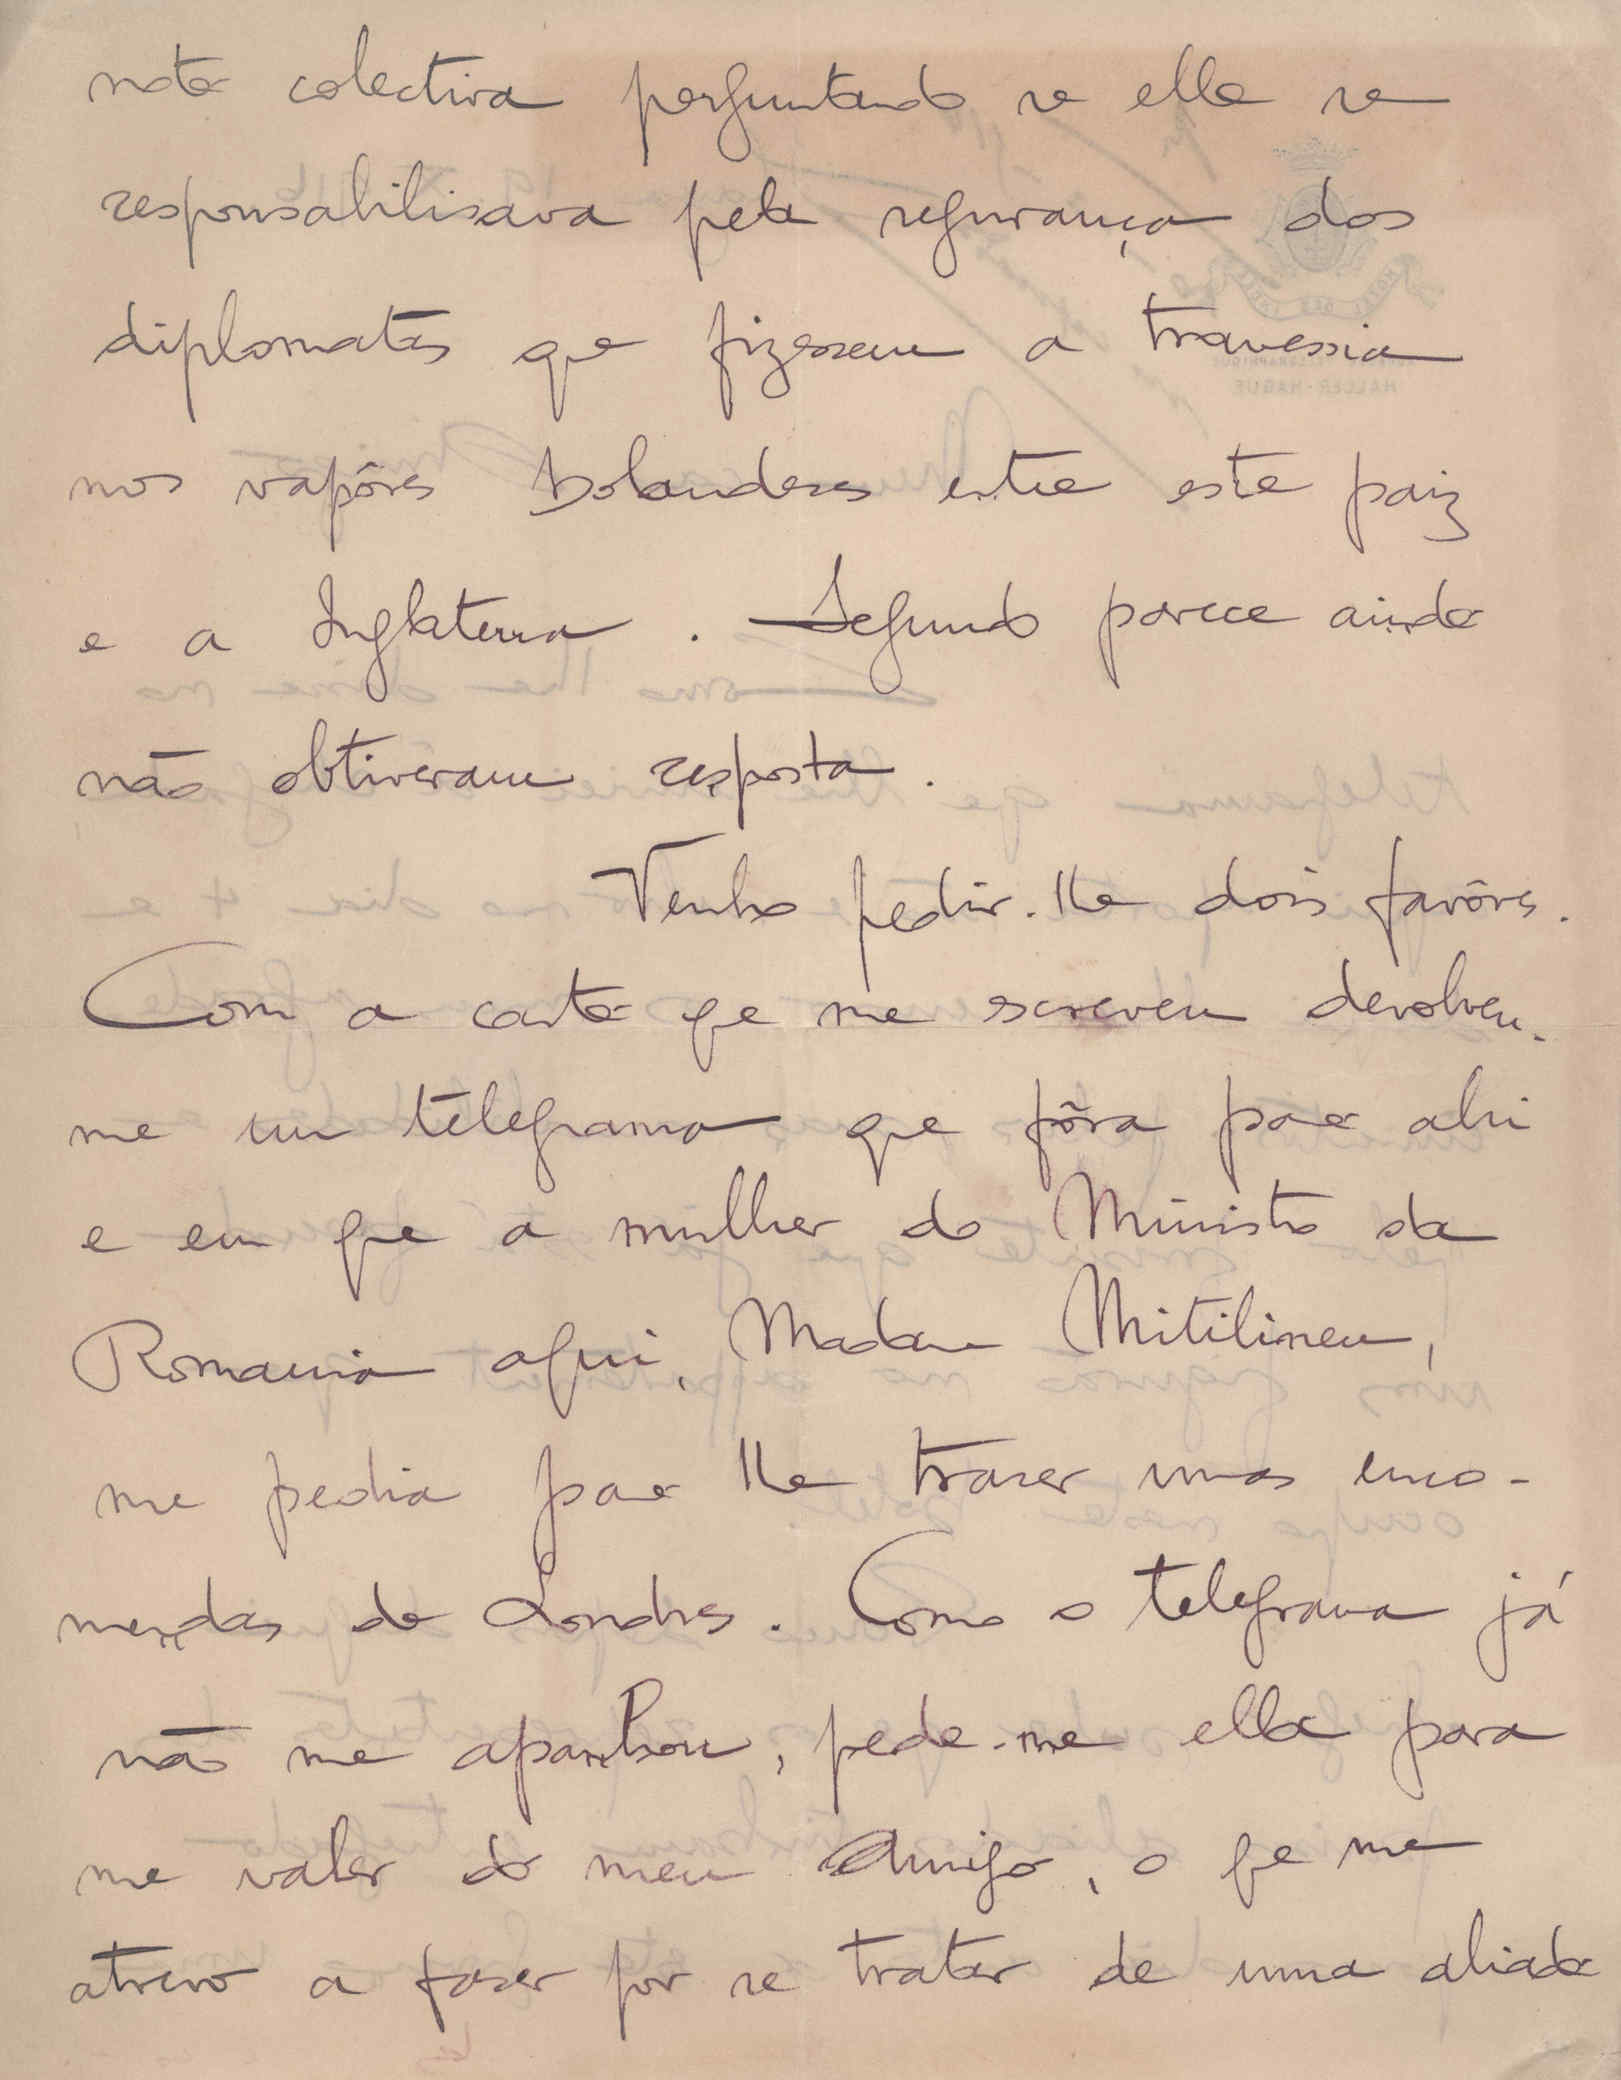 nota colectiva perguntando se elle se
responsabilisava pela segurança dos
diplomatas que fizessem a travessia
nos vapôres holandeses entre este paiz
e a Inglaterra. Segundo parece ainda
não obtiveram resposta.
Venho pedir-lhe dois favôres.
Com a carta que me screveu devolveu-
me um telegrama que fôra para ahi
e em que a mulher do Ministro da
Romania aqui, Madame Mitilineu,
me pedia para lhe trazer umas enco-
mendas de Londres. Como o telegrama já
não me apanhou, pede-me ella para
me valer do meu Amigo, o que me
atrevo a fazer por se tratar de uma aliada